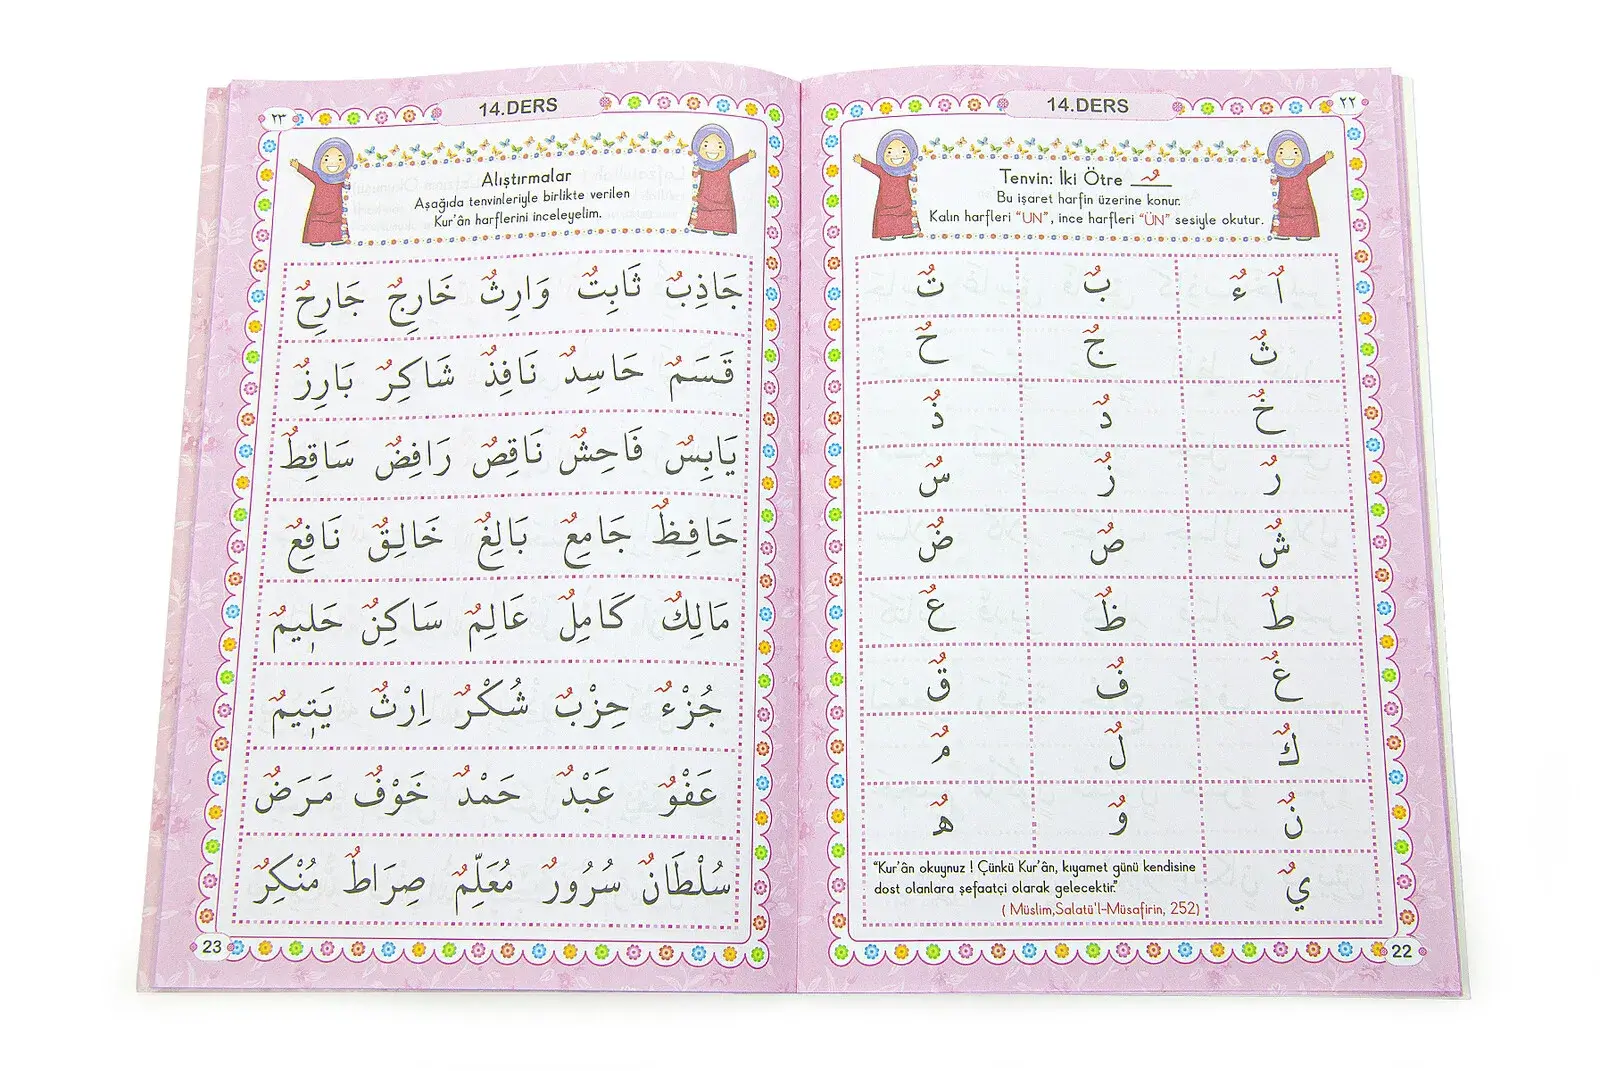 ٢٢
14.DERS
Tenvin: İki Ötre ـٌـ
Bu işaret harfin üzerine konur.
Kalın harfleri “UN”, ince harfleri “ÜN” sesiyle okutur.
اٌ ءٌ بٌ تٌ
ثٌ جٌ حٌ
خٌ دٌ ذٌ
رٌ زٌ سٌ
شٌ صٌ ضٌ
طٌ ظٌ عٌ
غٌ فٌ قٌ
كٌ لٌ مٌ
نٌ وٌ هٌ
يٌ
“Kur’ân okuynuz ! Çünkü Kur’ân, kıyamet günü kendisine
dost olanlara şefaatçi olarak gelecektir.”
( Müslim,Salatü'l-Müsafirin, 252)
22
٢٣
14.DERS
Alıştırmalar
Aşağıda tenvinleriyle birlikte verilen
Kur’ân harflerini inceleyelim.
جَاذِبٌ ثَابِتٌ وَارِثٌ خَارِجٌ جَارِحٌ
قَسَمٌ حَاسِدٌ نَافِذٌ شَاكِرٌ بَارِزٌ
يَابِسٌ فَاحِشٌ نَاقِصٌ رَافِضٌ سَاقِطٌ
حَافِظٌ جَامِعٌ بَالِغٌ خَالِقٌ نَافِعٌ
مَالِكٌ كَامِلٌ عَالِمٌ سَاكِنٌ حَلِيمٌ
جُزْءٌ حِزْبٌ شُكْرٌ اِرْثٌ يَتِيمٌ
عَفْوٌ عَبْدٌ حَمْدٌ خَوْفٌ مَرَضٌ
سُلْطَانٌ سُرُورٌ مُعَلِّمٌ صِرَاطٌ مُنْكِرٌ
23